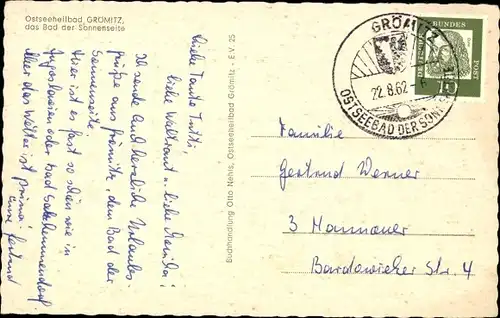 Ostseeheilbad GRÖMITZ,
das Bad der Sonnenseite
Liebe Tante Tutti,
liebe Waltraut u. liebe Monika!
Ich sende Euch herzliche Urlaubs-
grüße aus Grömitz, dem Bad der
Sonnenseite.
Hier ist es fast so schön wie in
oder Bad
Aber das Wetter ist prima!
Euer Gertrud
Buchhandlung Otto Nehls, Ostseeheilbad Grömitz - E.V. 25
GRÖMITZ
22.8.62
OSTSEEBAD DER SONNE
BUNDES
POST
10
Familie
Gertrud Werner
3 Hannover
Bardowicker Str. 4